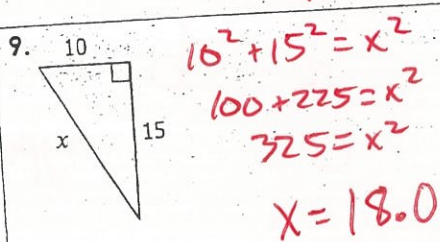 9. 10
10² + 15² = x²
100 + 225 = x²
x 15
325 = x²
x = 18.0